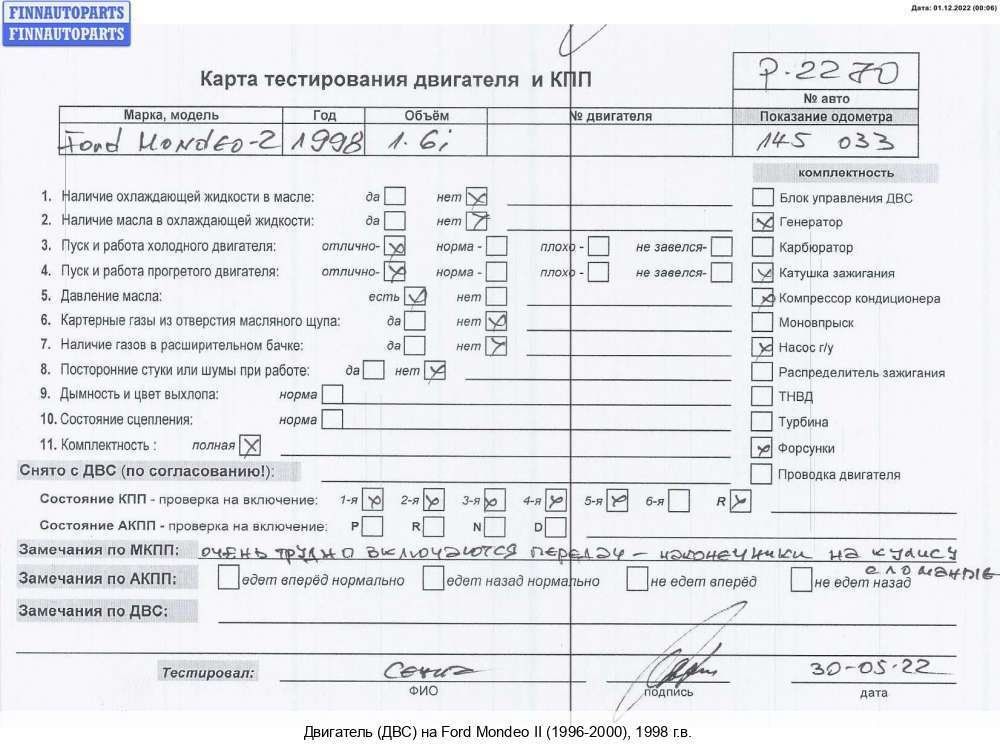 FINNAUTOPARTS
FINNAUTOPARTS
Дата: 01.12.2022 (00:06)
Карта тестирования двигателя и КПП
P-2270
№ авто
Марка, модель Год Объём № двигателя Показание одометра
Ford Mondeo-2 1998 1.6i 145 033
комплектность
1. Наличие охлаждающей жидкости в масле: да нет
Блок управления ДВС
2. Наличие масла в охлаждающей жидкости: да нет
Генератор
3. Пуск и работа холодного двигателя: отлично- норма - плохо - не завелся-
Карбюратор
4. Пуск и работа прогретого двигателя: отлично- норма - плохо - не завелся-
Катушка зажигания
5. Давление масла: есть нет
Компрессор кондиционера
6. Картерные газы из отверстия масляного щупа: да нет
Моновпрыск
7. Наличие газов в расширительном бачке: да нет
Насос г/у
8. Посторонние стуки или шумы при работе: да нет
Распределитель зажигания
9. Дымность и цвет выхлопа: норма
ТНВД
10. Состояние сцепления: норма
Турбина
11. Комплектность : полная
Форсунки
Снято с ДВС (по согласованию!):
Проводка двигателя
Состояние КПП - проверка на включение: 1-я 2-я 3-я 4-я 5-я 6-я R
Состояние АКПП - проверка на включение: P R N D
Замечания по МКПП: очень трудно включаются передач - наконечники на кулису
сломаные
Замечания по АКПП: едет вперёд нормально едет назад нормально не едет вперёд не едет назад
Замечания по ДВС:
Тестировал: 30-05-22
ФИО подпись дата
Двигатель (ДВС) на Ford Mondeo II (1996-2000), 1998 г.в.